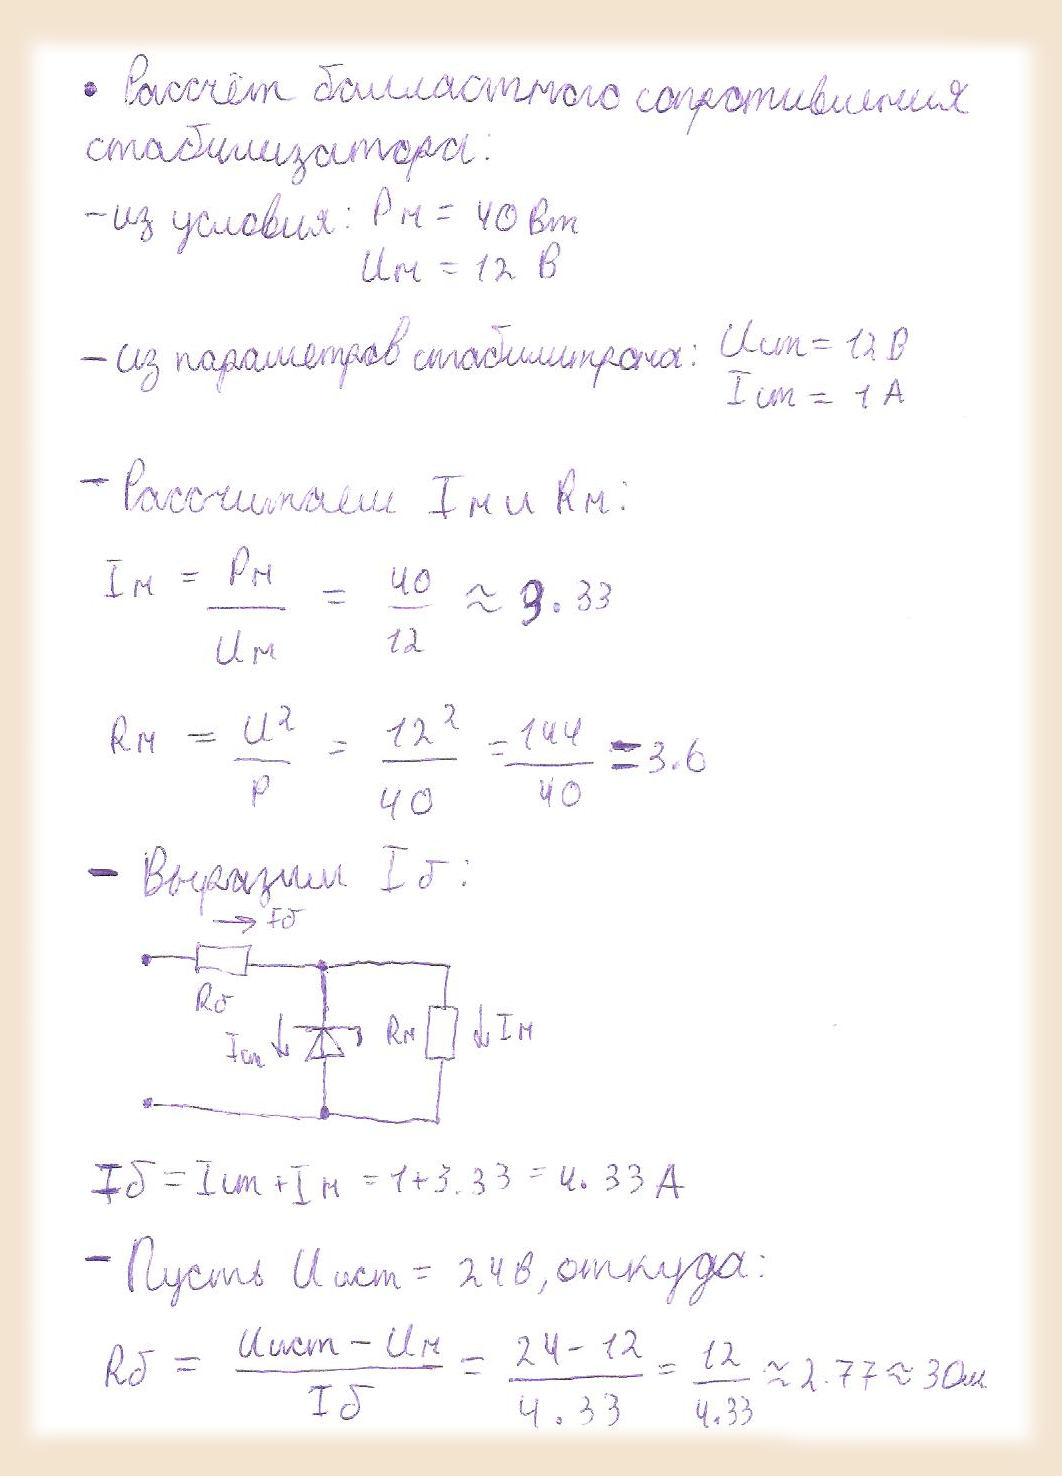 • Рассчёт балластного сопротивления
стабилизатора:
- из условия: Pн = 40 Вт
Uн = 12 В
- из параметров стабилитрона: Uст = 12 В
Iст = 1 А
- Рассчитаем Iн и Rн:
Iн = Pн / Uн = 40 / 12 ≈ 3.33
Rн = U² / P = 12² / 40 = 144 / 40 = 3.6
- Выразим Iб:
→ Iб
Rб
Iст ↓ Rн ↓ Iн
Iб = Iст + Iн = 1 + 3.33 = 4.33 А
- Пусть Uист = 24В, откуда:
Rб = Uист - Uн / Iб = 24 - 12 / 4.33 = 12 / 4.33 ≈ 2.77 ≈ 3 Ом